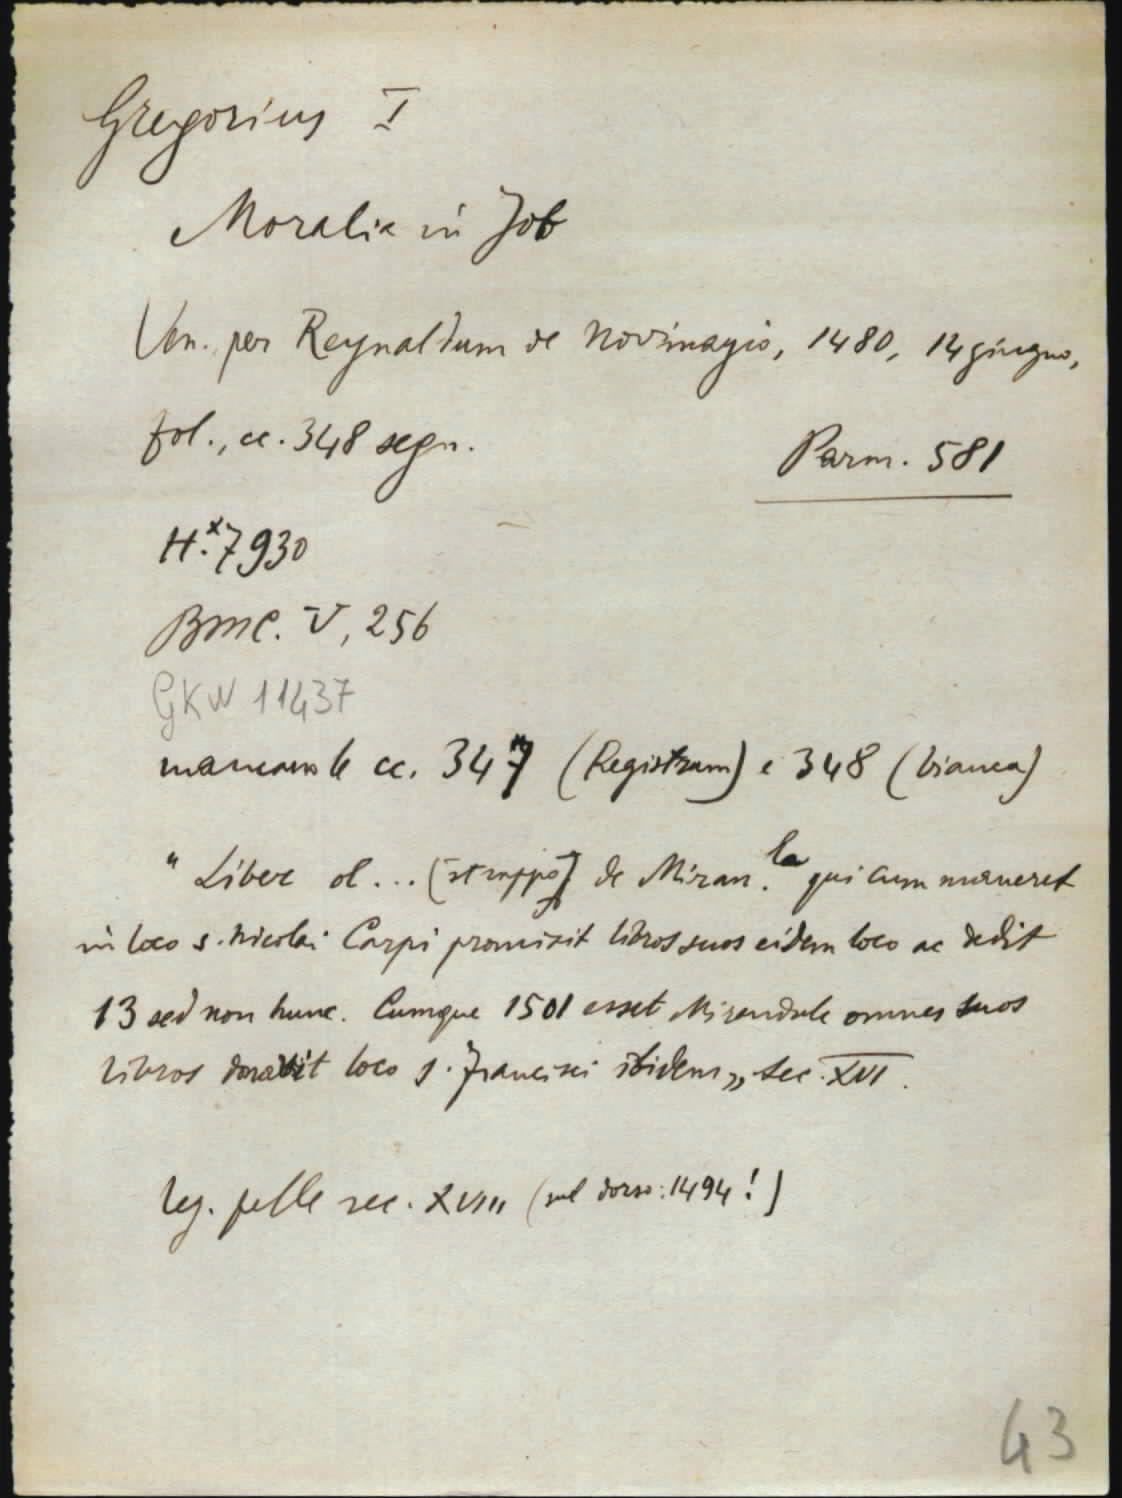 Gregorius I
Moralia in Job
Ven. per Reynaldum de Novimagio, 1480, 14 giugno,
fol., cc. 348 segn.
Parm. 581
H.x 7930
BMC. V, 256
GKW 11437
mancano le cc. 347 (Registrum) e 348 (bianca)
"Liber ol... [strappo] de Miran.la qui cum maneret
in loco s. Nicolai Carpi promisit libros suos eidem loco ac dedit
13 sed non hunc. Cumque 1501 esset Mirandule omnes suos
libros donavit loco s. Francisci ibidem,, sec. XVI.
leg. pelle sec. XVIII (sul dorso: 1494!)
43